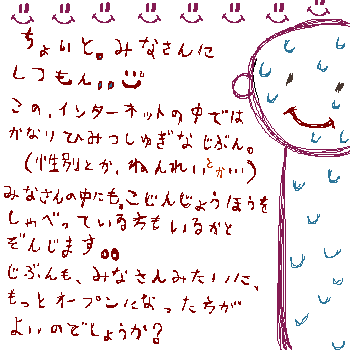 ちょいと。みなさんに
しつもん。。
この、インターネットの中では
かなりひみつしゅぎなじぶん。
(性別とか、ねんれいとか…)
みなさんの中にも、こじんじょうほうを
しゃべっている方もいるかと
ぞんじます。。
じぶんも、みなさんみたいに、
もっとオープンになった方が
よいのでしょうか?